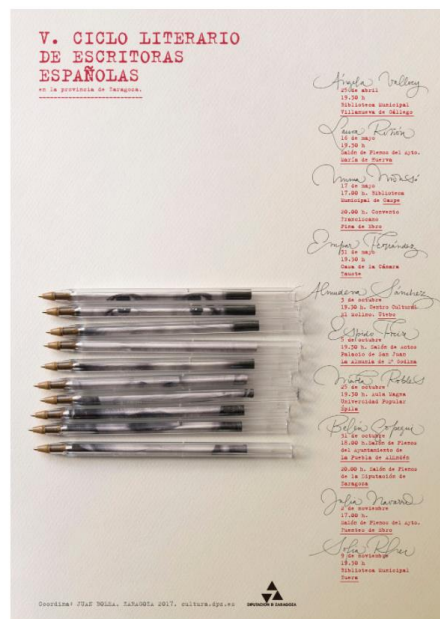 V. CICLO LITERARIO
DE ESCRITORAS
ESPAÑOLAS
en la provincia de Zaragoza.
Ángela Vallvey
19.30 h
Biblioteca Municipal
Villanueva de Gállego
16 de mayo
19.30 h
Salón de Plenos del Ayto.
María de Huerva
17 de mayo
17.00 h. Biblioteca
Municipal de Caspe
20.00 h. Convento
Franciscano
Pina de Ebro
Empar Fernández
31 de mayo
19.30 h
Casa de la Cámara
Tauste
Almudena Sánchez
3 de octubre
19.30 h. Centro Cultural
el Molino. Utebo
Espido Freire
19.30 h. Salón de actos
Palacio de San Juan
La Almunia de Dª Godina
Marta Robles
25 de octubre
19.30 h. Aula Magna
Universidad Popular
Épila
Belén Gopegui
31 de octubre
18.00 h. Salón de Plenos
del Ayuntamiento de
La Puebla de Alfindén
20.00 h. Salón de Plenos
de la Diputación de
Zaragoza
Julia Navarro
2 de noviembre
17.00 h.
Salón de Plenos del Ayto.
Fuentes de Ebro
Sofía Rhei
9 de noviembre
18.30 h
Biblioteca Municipal
Zuera
Coordina: JUAN BOLEA. ZARAGOZA 2017. cultura.dpz.es
DIPUTACIÓN DE ZARAGOZA